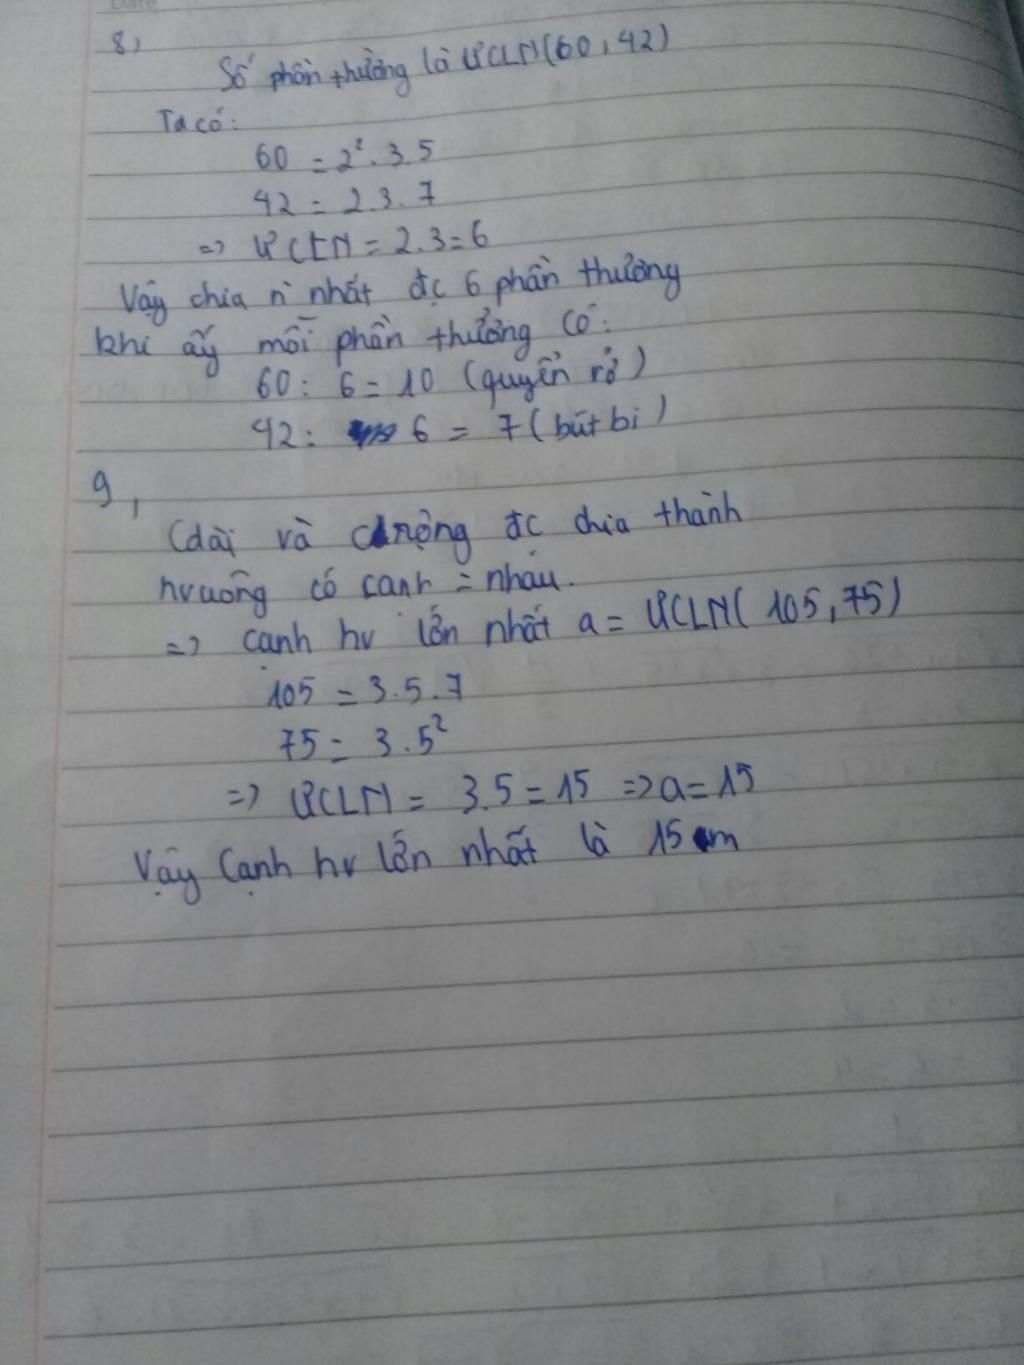 8,
Số phần thưởng là ƯCLN(60, 42)
Ta có:
60 = 2². 3 5
42 = 2.3.7
=> ƯCLN = 2.3=6
Vậy chia n` nhất đc 6 phần thưởng
khi ấy mỗi phần thưởng có:
60: 6 = 10 (quyển vở)
42: 6 = 7 (bút bi)
9,
Cdài và crộng đc chia thành
hvuông có cạnh = nhau.
=> cạnh hv lớn nhất a = ƯCLN( 105, 75)
105 = 3.5.7
75 = 3.5²
=> ƯCLN = 3.5=15 => a=15
Vậy cạnh hv lớn nhất là 15 cm